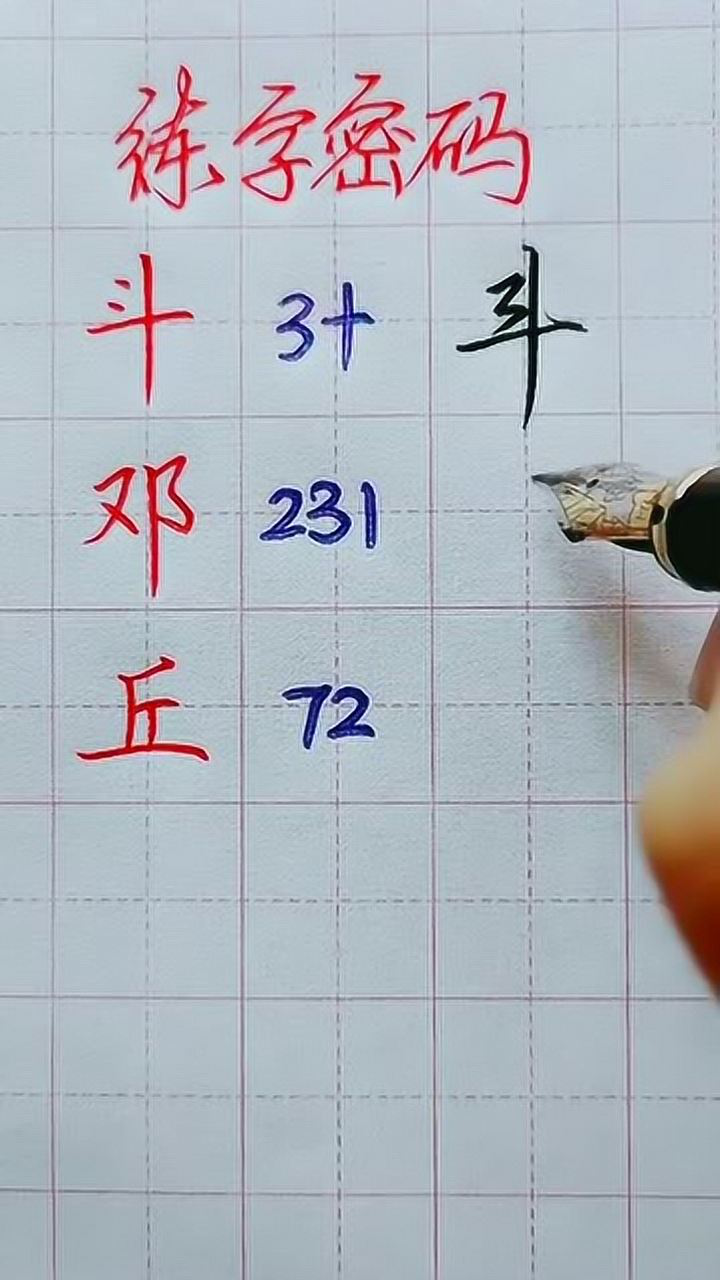 练字密码
斗 3+ 斗
邓 231
丘 72